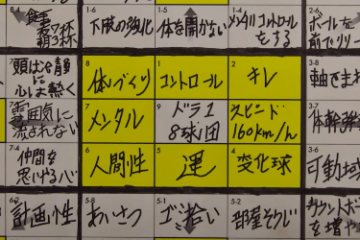 食事
夜7杯
朝3杯
1-6
下肢の強化
1-5
体を開かない
1-4
メンタルコントロール
をする
2-6
ボールを
前でリリー
頭は冷静に
心は熱く
8
体づくり
1
コントロール
2
キレ
軸でまわ
雰囲気に
流されない
7
メンタル
9
ドラ1
8球団
3
スピード
160km/h
3-7
体幹強
7-4
仲間を
思いやる心
6
人間性
5
運
4
変化球
3-6
可動域
6-2
計画性
5-8
あいさつ
5-1
ゴミ拾い
5-2
部屋そうじ
カウントボー
を増や